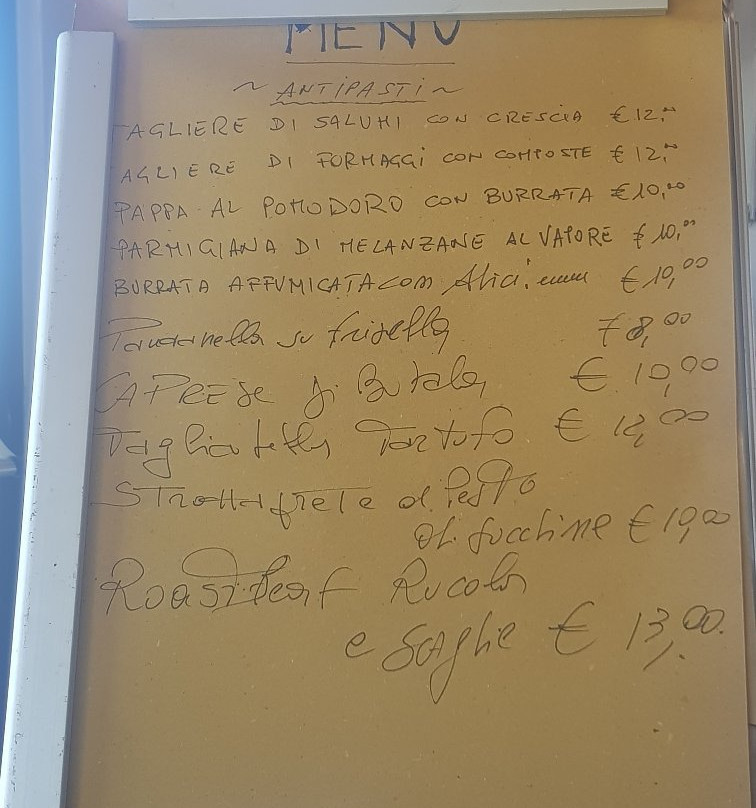 MENU
~ ANTIPASTI ~
TAGLIERE DI SALUMI CON CRESCIA € 12,00
AGLIERE DI FORMAGGI CON COMPOSTE € 12,00
PAPPA AL POMODORO CON BURRATA € 10,00
PARMIGIANA DI MELANZANE AL VAPORE € 10,00
BURRATA AFFUMICATA CON Alici € 10,00
Panzanella su frisella € 8,00
CAPRESE di Bufala € 10,00
Tagliatella Tartufo € 12,00
STROZZAPRETE al PesTo
di zucchine € 10,00
ROASTBeaf Rucola
e Scaglie € 13,00.